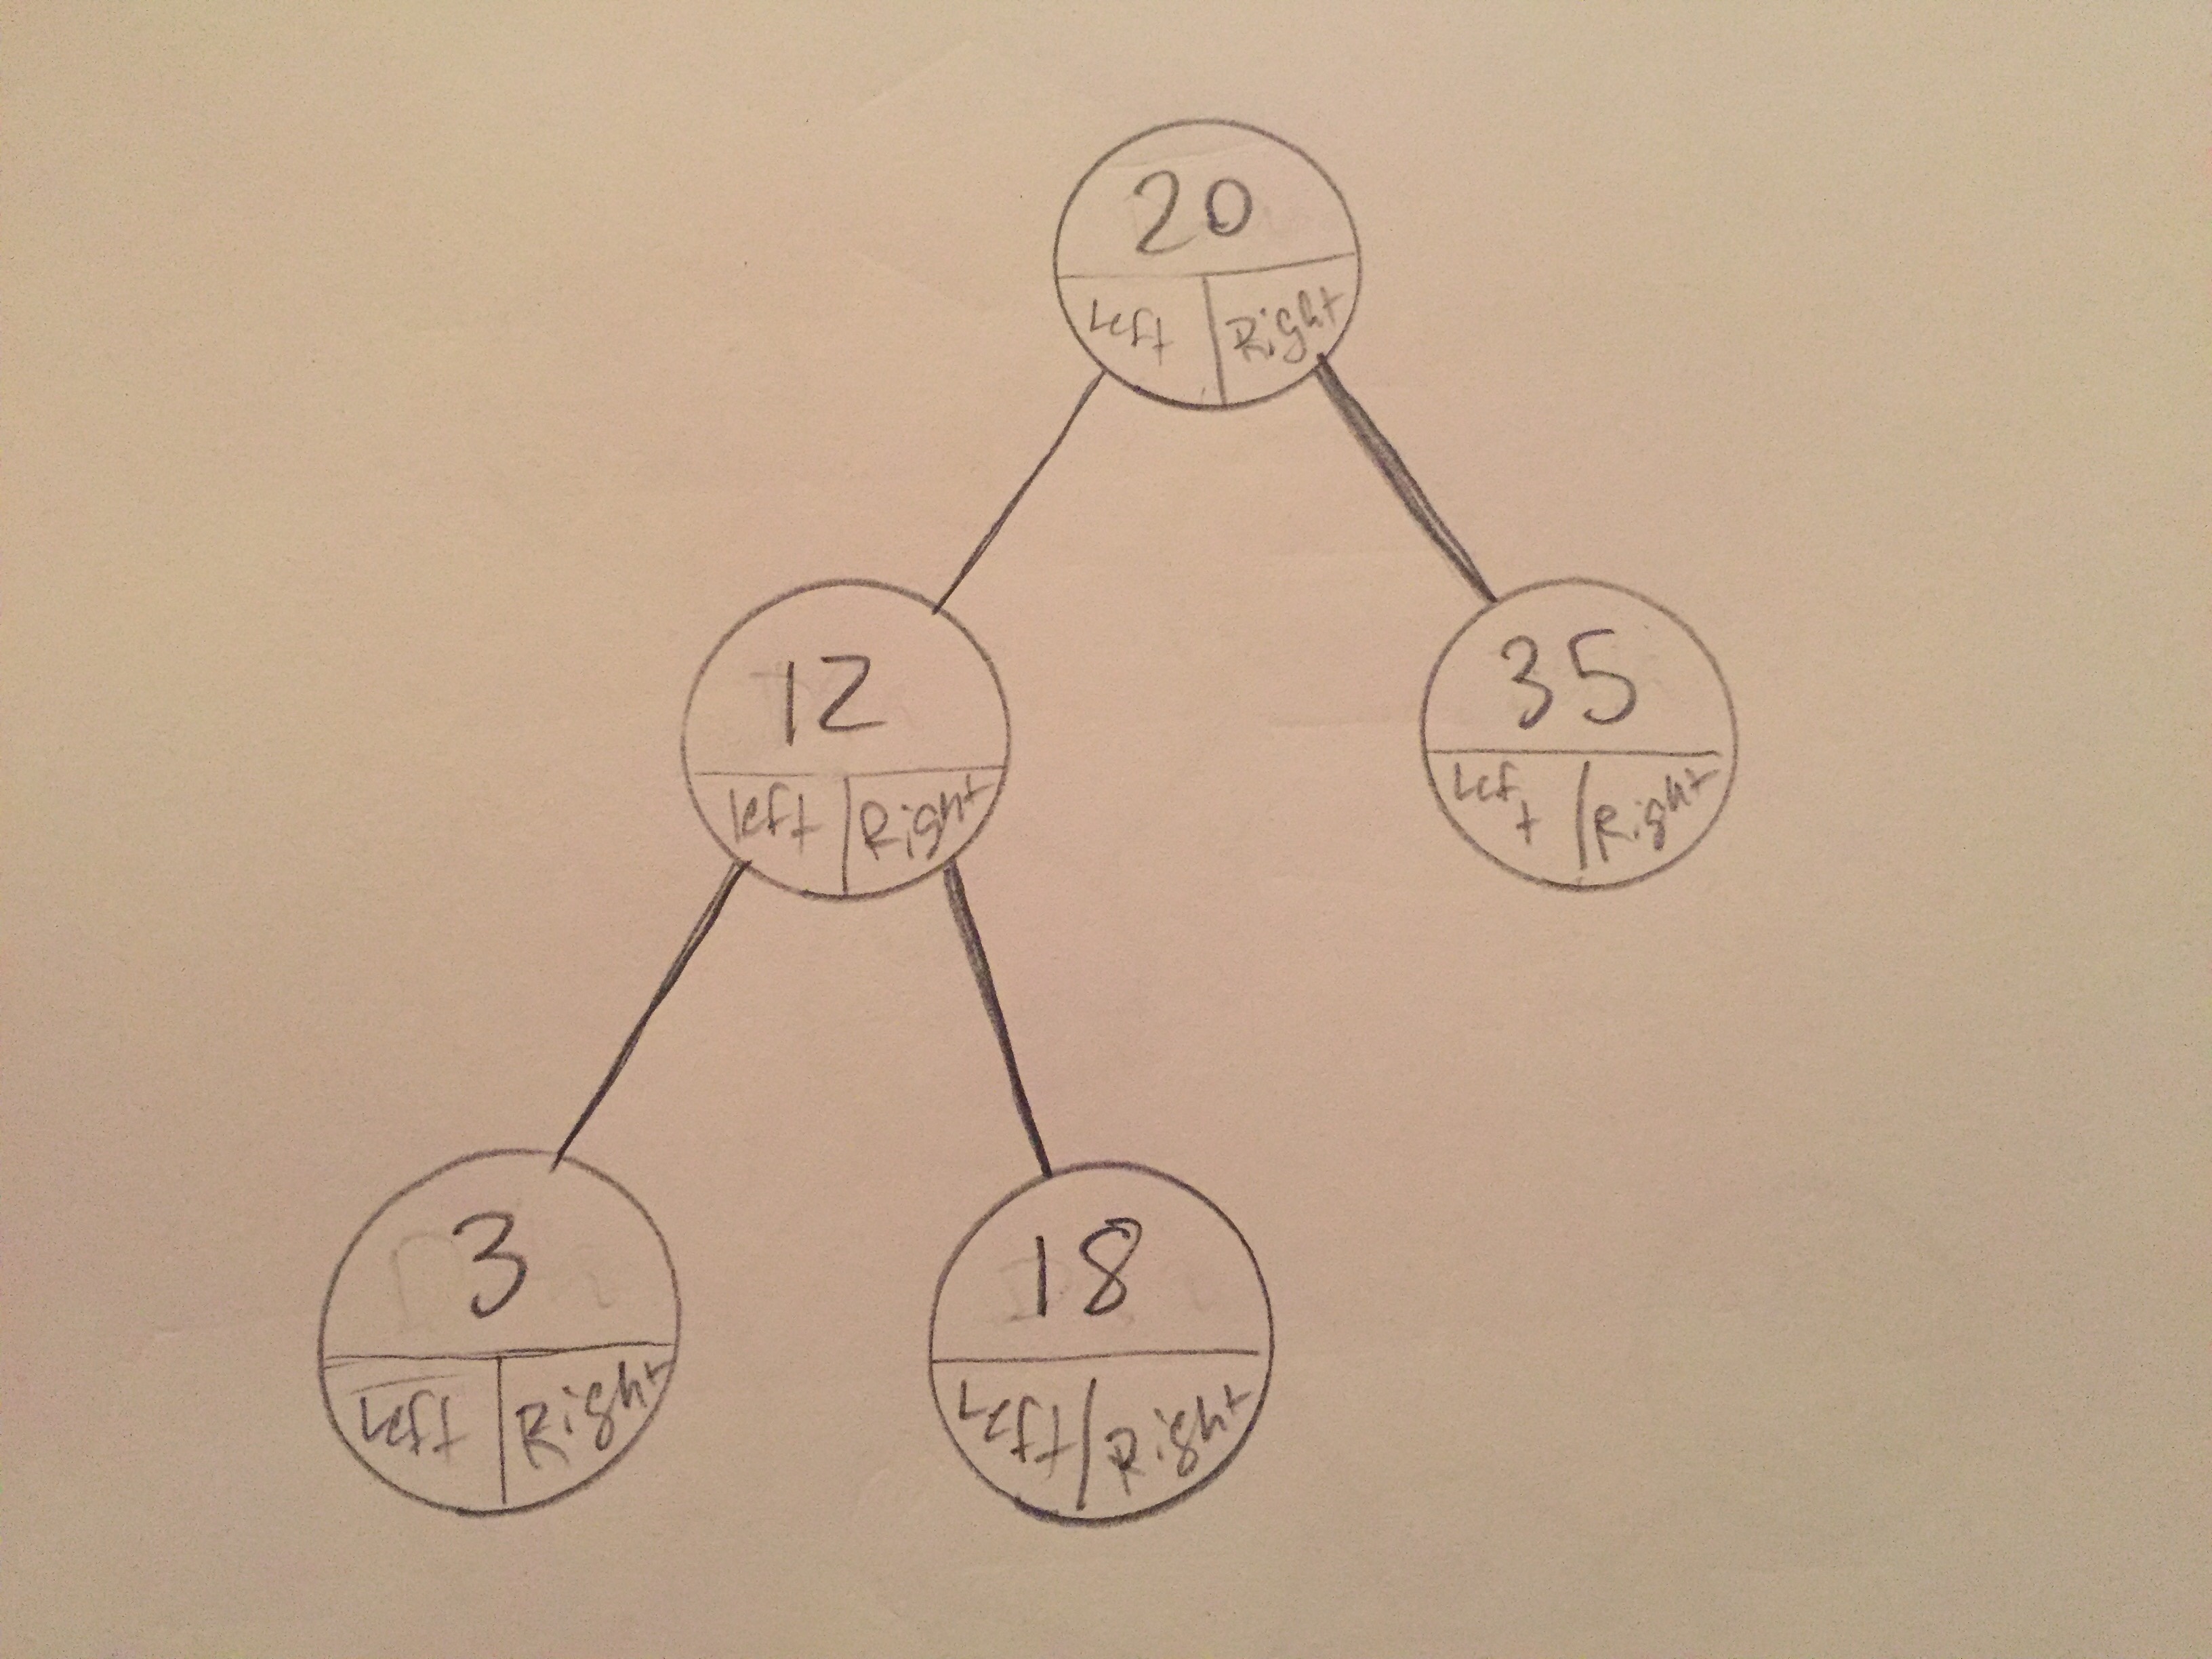 20
Left Right
12
left Right
35
Left Right
3
Left Right
18
Left Right